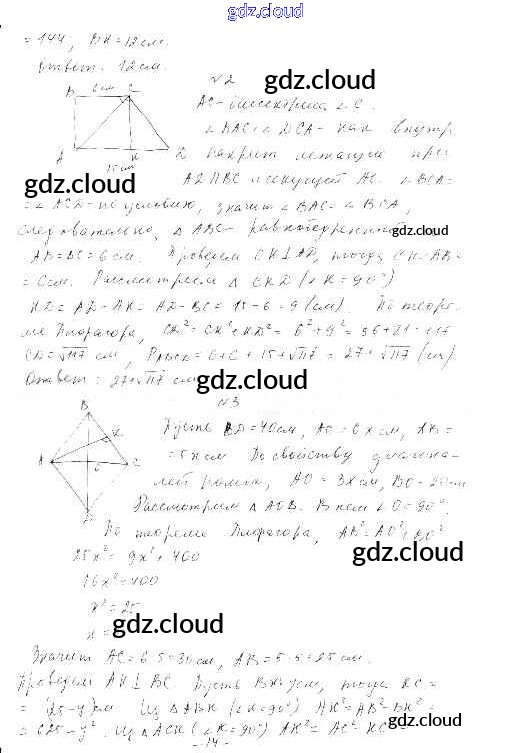 gdz.cloud
= 144, ВК = 12 см.
Ответ: 12 см.
№2
gdz.cloud
B 6 см C
A 15 см K D
AC - биссектриса ∠C.
∠BAC = ∠DCA - как внутр.
накрест лежащие при
gdz.cloud
AD ∥ BC и секущей AC. ∠BCA =
= ∠ACD - по условию, значит ∠BAC = ∠BCA,
следовательно, △ABC - равнобедренный
gdz.cloud
AB = BC = 6 см. Проведем CK ⊥ AD, тогда CK = AB =
= 6 см. Рассмотрим △CKD (∠K = 90°)
KD = AD - AK = AD - BC = 15 - 6 = 9 (см). По теоре-
ме Пифагора, CD² = CK² + KD² = 6² + 9² = 36 + 81 = 117
CD = √117 см, PABCD = 6 + 6 + 15 + √117 = 27 + √117 (см)
Ответ: 27 + √117 см
gdz.cloud
№3
B
K
A O C
D
Пусть BD = 40 см, AC = 6x см, AB =
= 5x см По свойству диагона-
лей ромба, AO = 3x см, BO = 20 см
Рассмотрим △AOB. В нем ∠O = 90°.
По теореме Пифагора, AB² = AO² + BO²
gdz.cloud
25x² = 9x² + 400
16x² = 400
x² = 25
x =
gdz.cloud
Значит AC = 6·5 = 30 см, AB = 5·5 = 25 см.
Проведем AK ⊥ BC. Пусть BK = y см, тогда KC =
= (25 - y) см Из △ABK (∠K = 90°) AK² = AB² - BK² =
= 625 - y². Из △ACK (∠K = 90°) AK² = AC² - KC² =
gdz.cloud
- 14 -